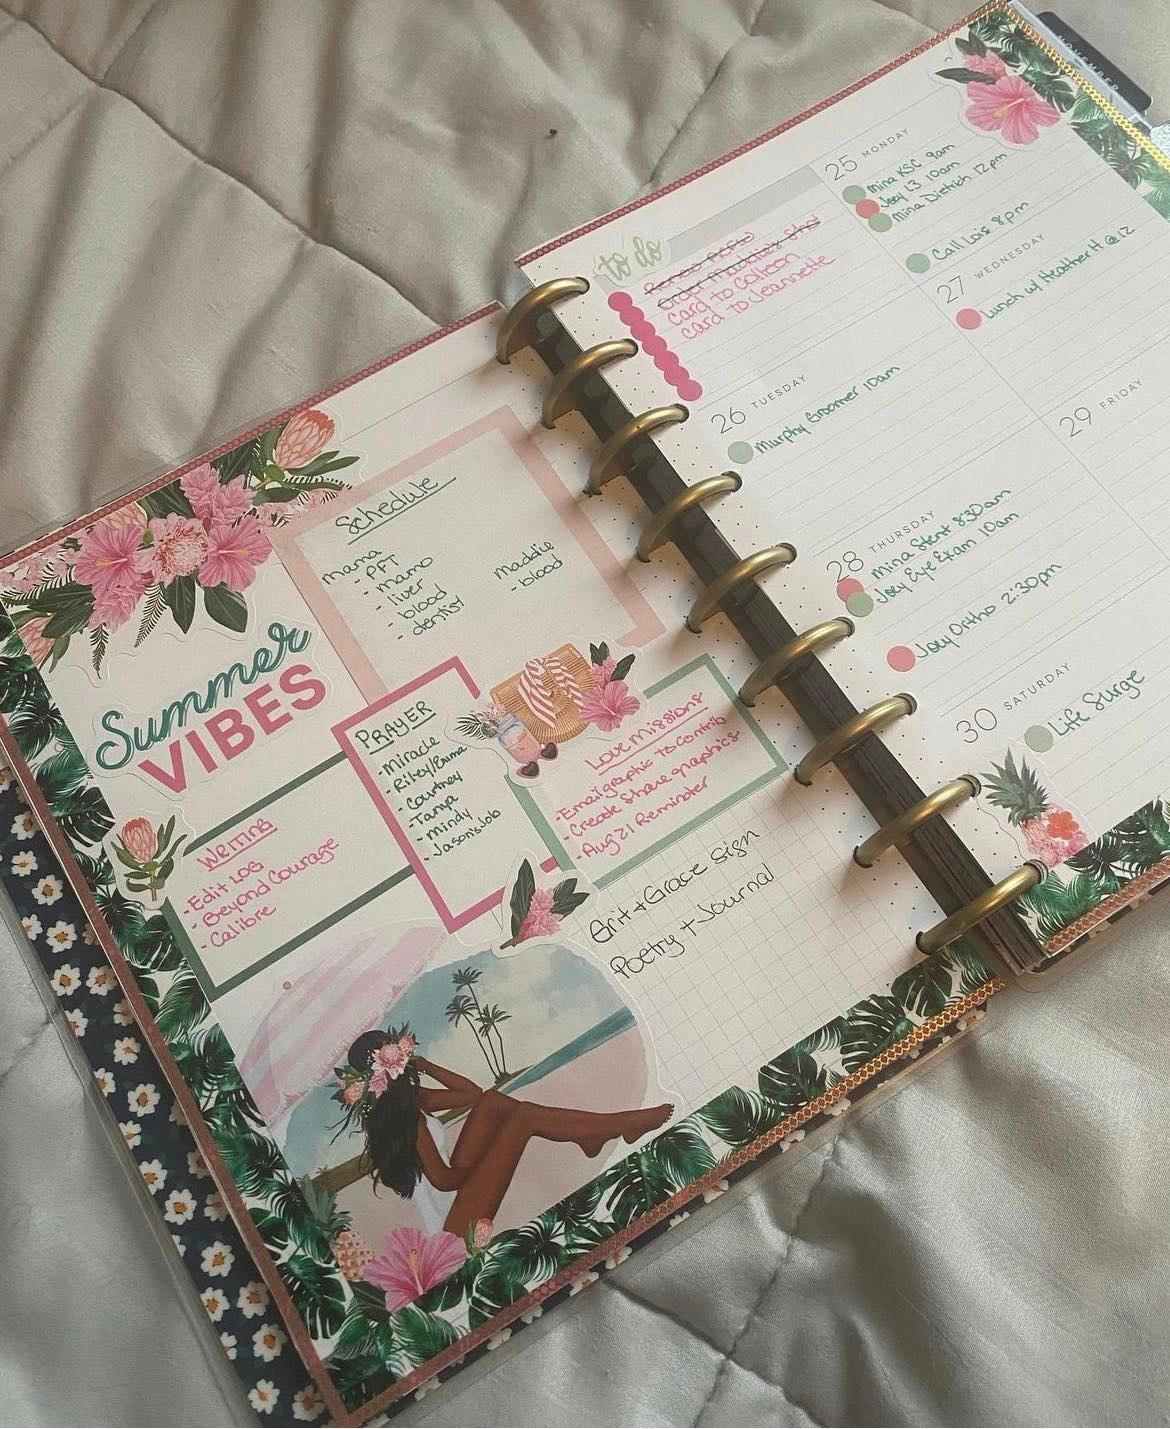 Summer
VIBES
Schedule
mama
- PFT
- mamo
- liver
- blood
- dentist
maddie
- blood
PRAYER
- Miracle
- Riley/Emma
- Courtney
- Tanya
- Mindy
- Jason's Job
Love Missions
- Email graphic to contrib
- Create share graphics
- Aug 21 Reminder
Writing
- Edit LOG
- Beyond Courage
- Calibre
Grit + Grace Sign
Poetry + Journal
to do
Order Maddie's
Card to Colleen
Card to Jeannette
25 MONDAY
Mina KSC 9am
Joey 13 10am
Mina Dietrich 12pm
Call Lois 8pm
26 TUESDAY
Murphy Groomer 10am
27 WEDNESDAY
Lunch w/ Heather H @ 12
28 THURSDAY
Mina Stent 830am
Joey Eye Exam 10am
Joey Ortho 2:30pm
29 FRIDAY
30 SATURDAY
Life Surge
NOVEMBER